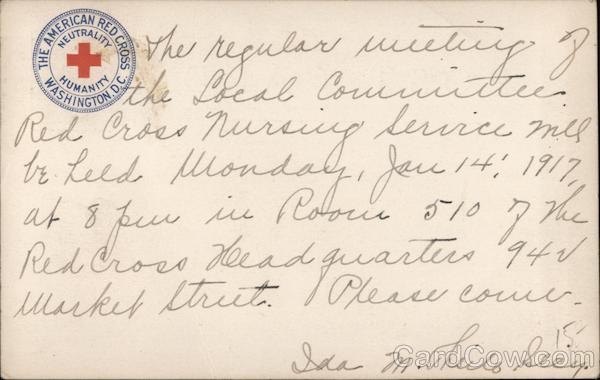 THE AMERICAN RED CROSS
NEUTRALITY
HUMANITY
WASHINGTON, D.C.
The regular meeting of
the Local Committee
Red Cross Nursing Service will
be held Monday, Jan 14, 1917,
at 8 pm in Room 510 of the
Red Cross Headquarters 942
Market Street. Please come.
15
Ida M. Secy.
CardCow.com